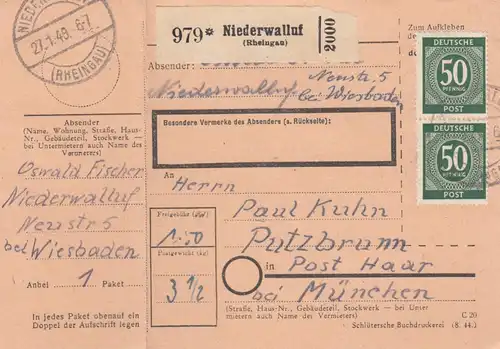 27.1.49. 8-7
(RHEINGAU)
979* Niederwalluf
(Rheingau)
2000
Zum Aufkleben
Absender:
Neustr. 5
Niederwalluf bei Wiesbaden
Besondere Vermerke des Absenders (s. Rückseite):
DEUTSCHE
50
PFENNIG
POST
DEUTSCHE
50
PFENNIG
POST
Absender
(Name, Wohnung, Straße, Haus-
Nr., Gebäudeteil, Stockwerk —
bei Untermietern auch Name des
Vermieters)
Oswald Fischer
Niederwalluf
Neustr 5
bei Wiesbaden
Anbei 1 Paket
In jedes Paket obenauf ein
Doppel der Aufschrift legen
An
Herrn
Paul Kuhn
Putzbrunn
in Post Haar
bei München
Freigebühr
Postgewicht (kg)
3 1/2
(Straße, Haus-Nr., Gebäudeteil, Stockwerk — bei Unter
mietern auch Name des Vermieters)
C 20
Schlütersche Buchdruckerei (8. 44.)